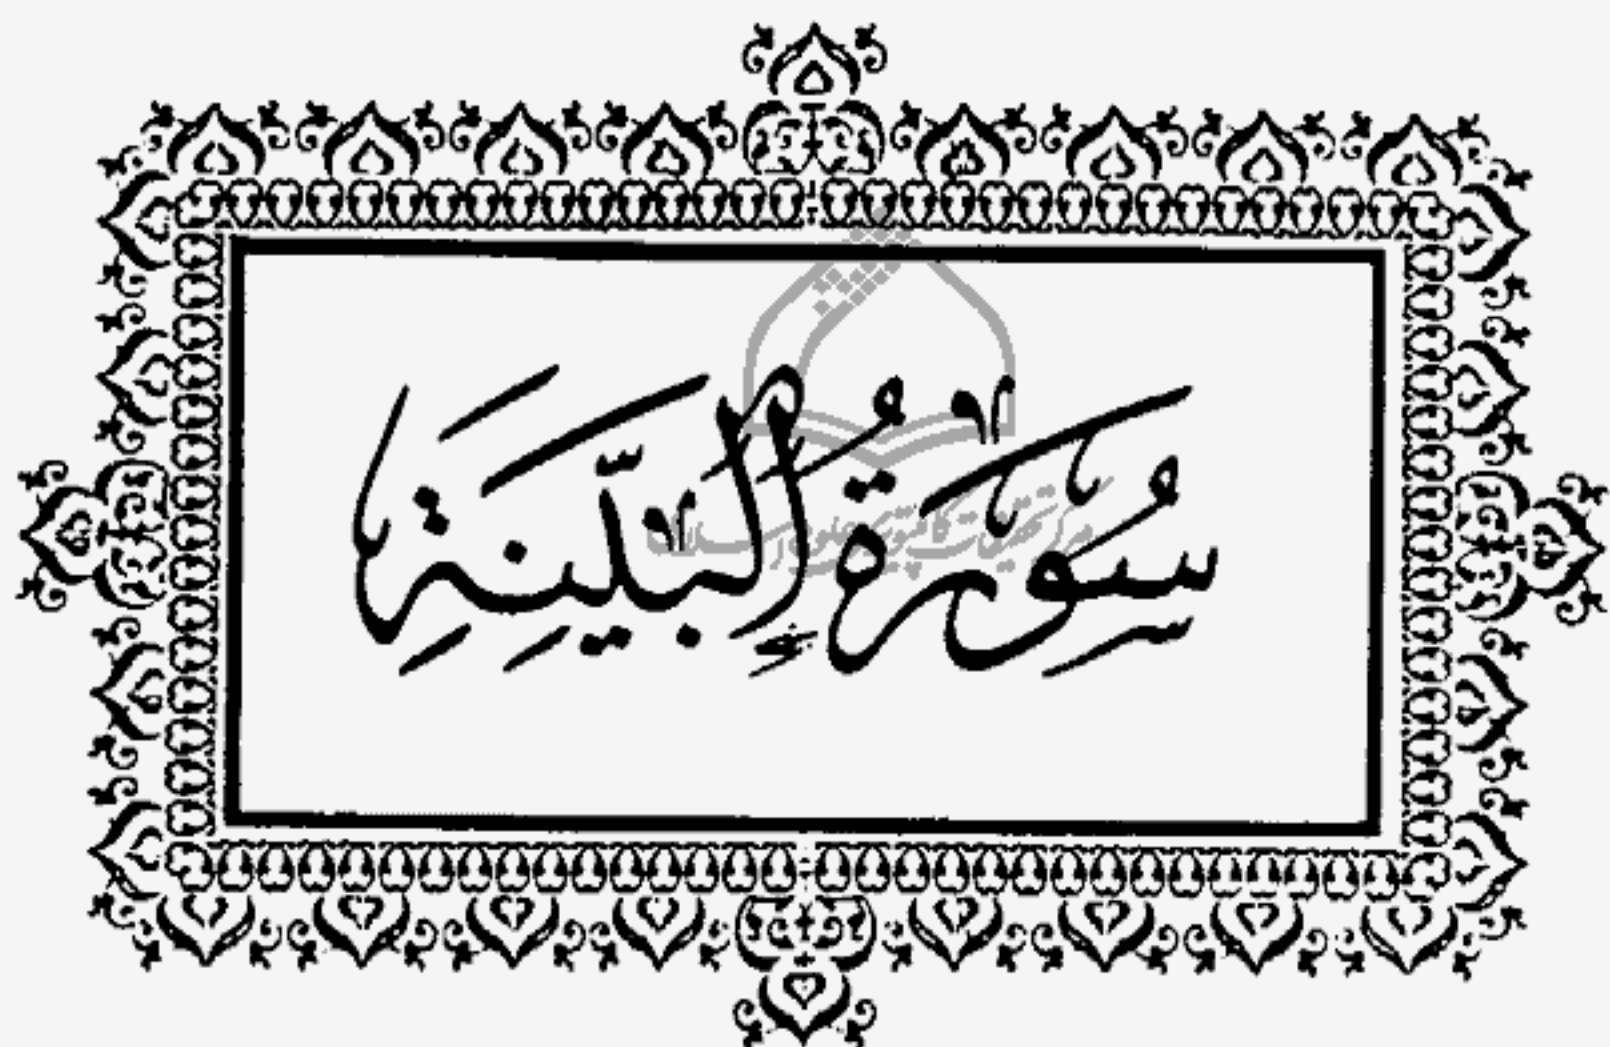 سُورَةُ البَيِّنَةِ
مرکز تحقیقات کامپیوتری علوم اسلامی